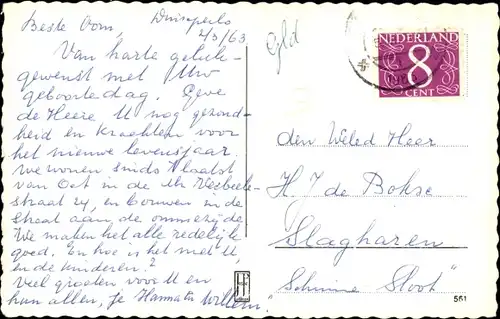 Beste Oom,
Dinxperlo
2/3/63
Van harte geluk-
gewenst met Uw
geboortedag. Geve
de Heere U nog gezond-
heid en krachten voor
het nieuwe levensjaar.
We wonen sinds
van Oct in de
straat 24, en bouwen in de
straat aan de
We maken het alle redelijk
goed. En hoe is het met U
en de kinderen?
Veel groeten voor U en
hun allen, je Hanna en Willem.
Gld
NEDERLAND
8
CENT
den Weled Heer
H. J. de Bokse
Slagharen
"Schuine Sloot"
561